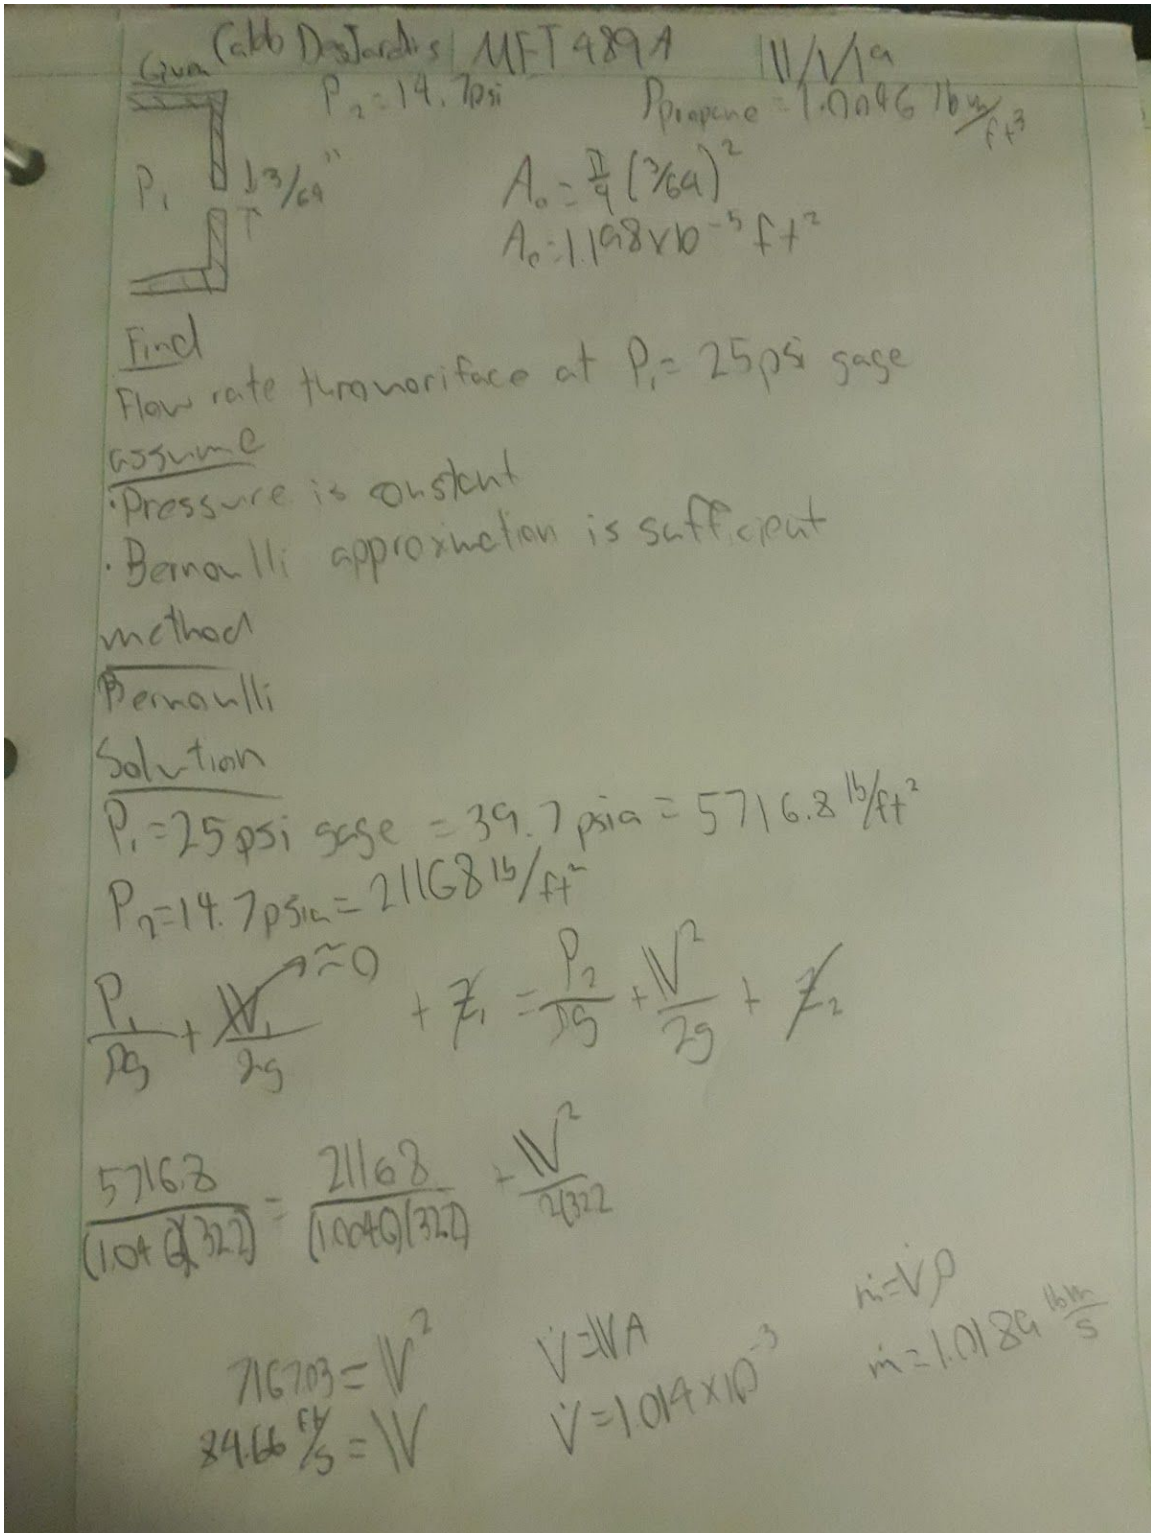 Caleb DesJardins MET 489A 11/1/19
Given
P₂ = 14.7psi
ρpropane = 1.0046 lbm/ft³
P₁ 3/64"
A₀ = π/4 (3/64)²
A₀ = 1.198x10⁻⁵ ft²
Find
Flow rate thru oriface at P₁ = 25psi gage
assume
· Pressure is constant
· Bernoulli approximation is sufficient
method
Bernoulli
Solution
P₁ = 25psi gage = 39.7psia = 5716.8 lb/ft²
P₂ = 14.7psia = 2116.8 lb/ft²
P₁/ρg + V₁/2g ≈0 + Z₁ = P₂/ρg + V²/2g + Z₂
5716.8/(1.046)(32.2) = 2116.8/(1.0046)(32.2) + V²/2(32.2
7167.03 = V²
84.66 ft/s = V
V̇ = VA
V̇ = 1.014 x 10⁻³
ṁ = V̇ρ
ṁ = 1.0189 lbm/s